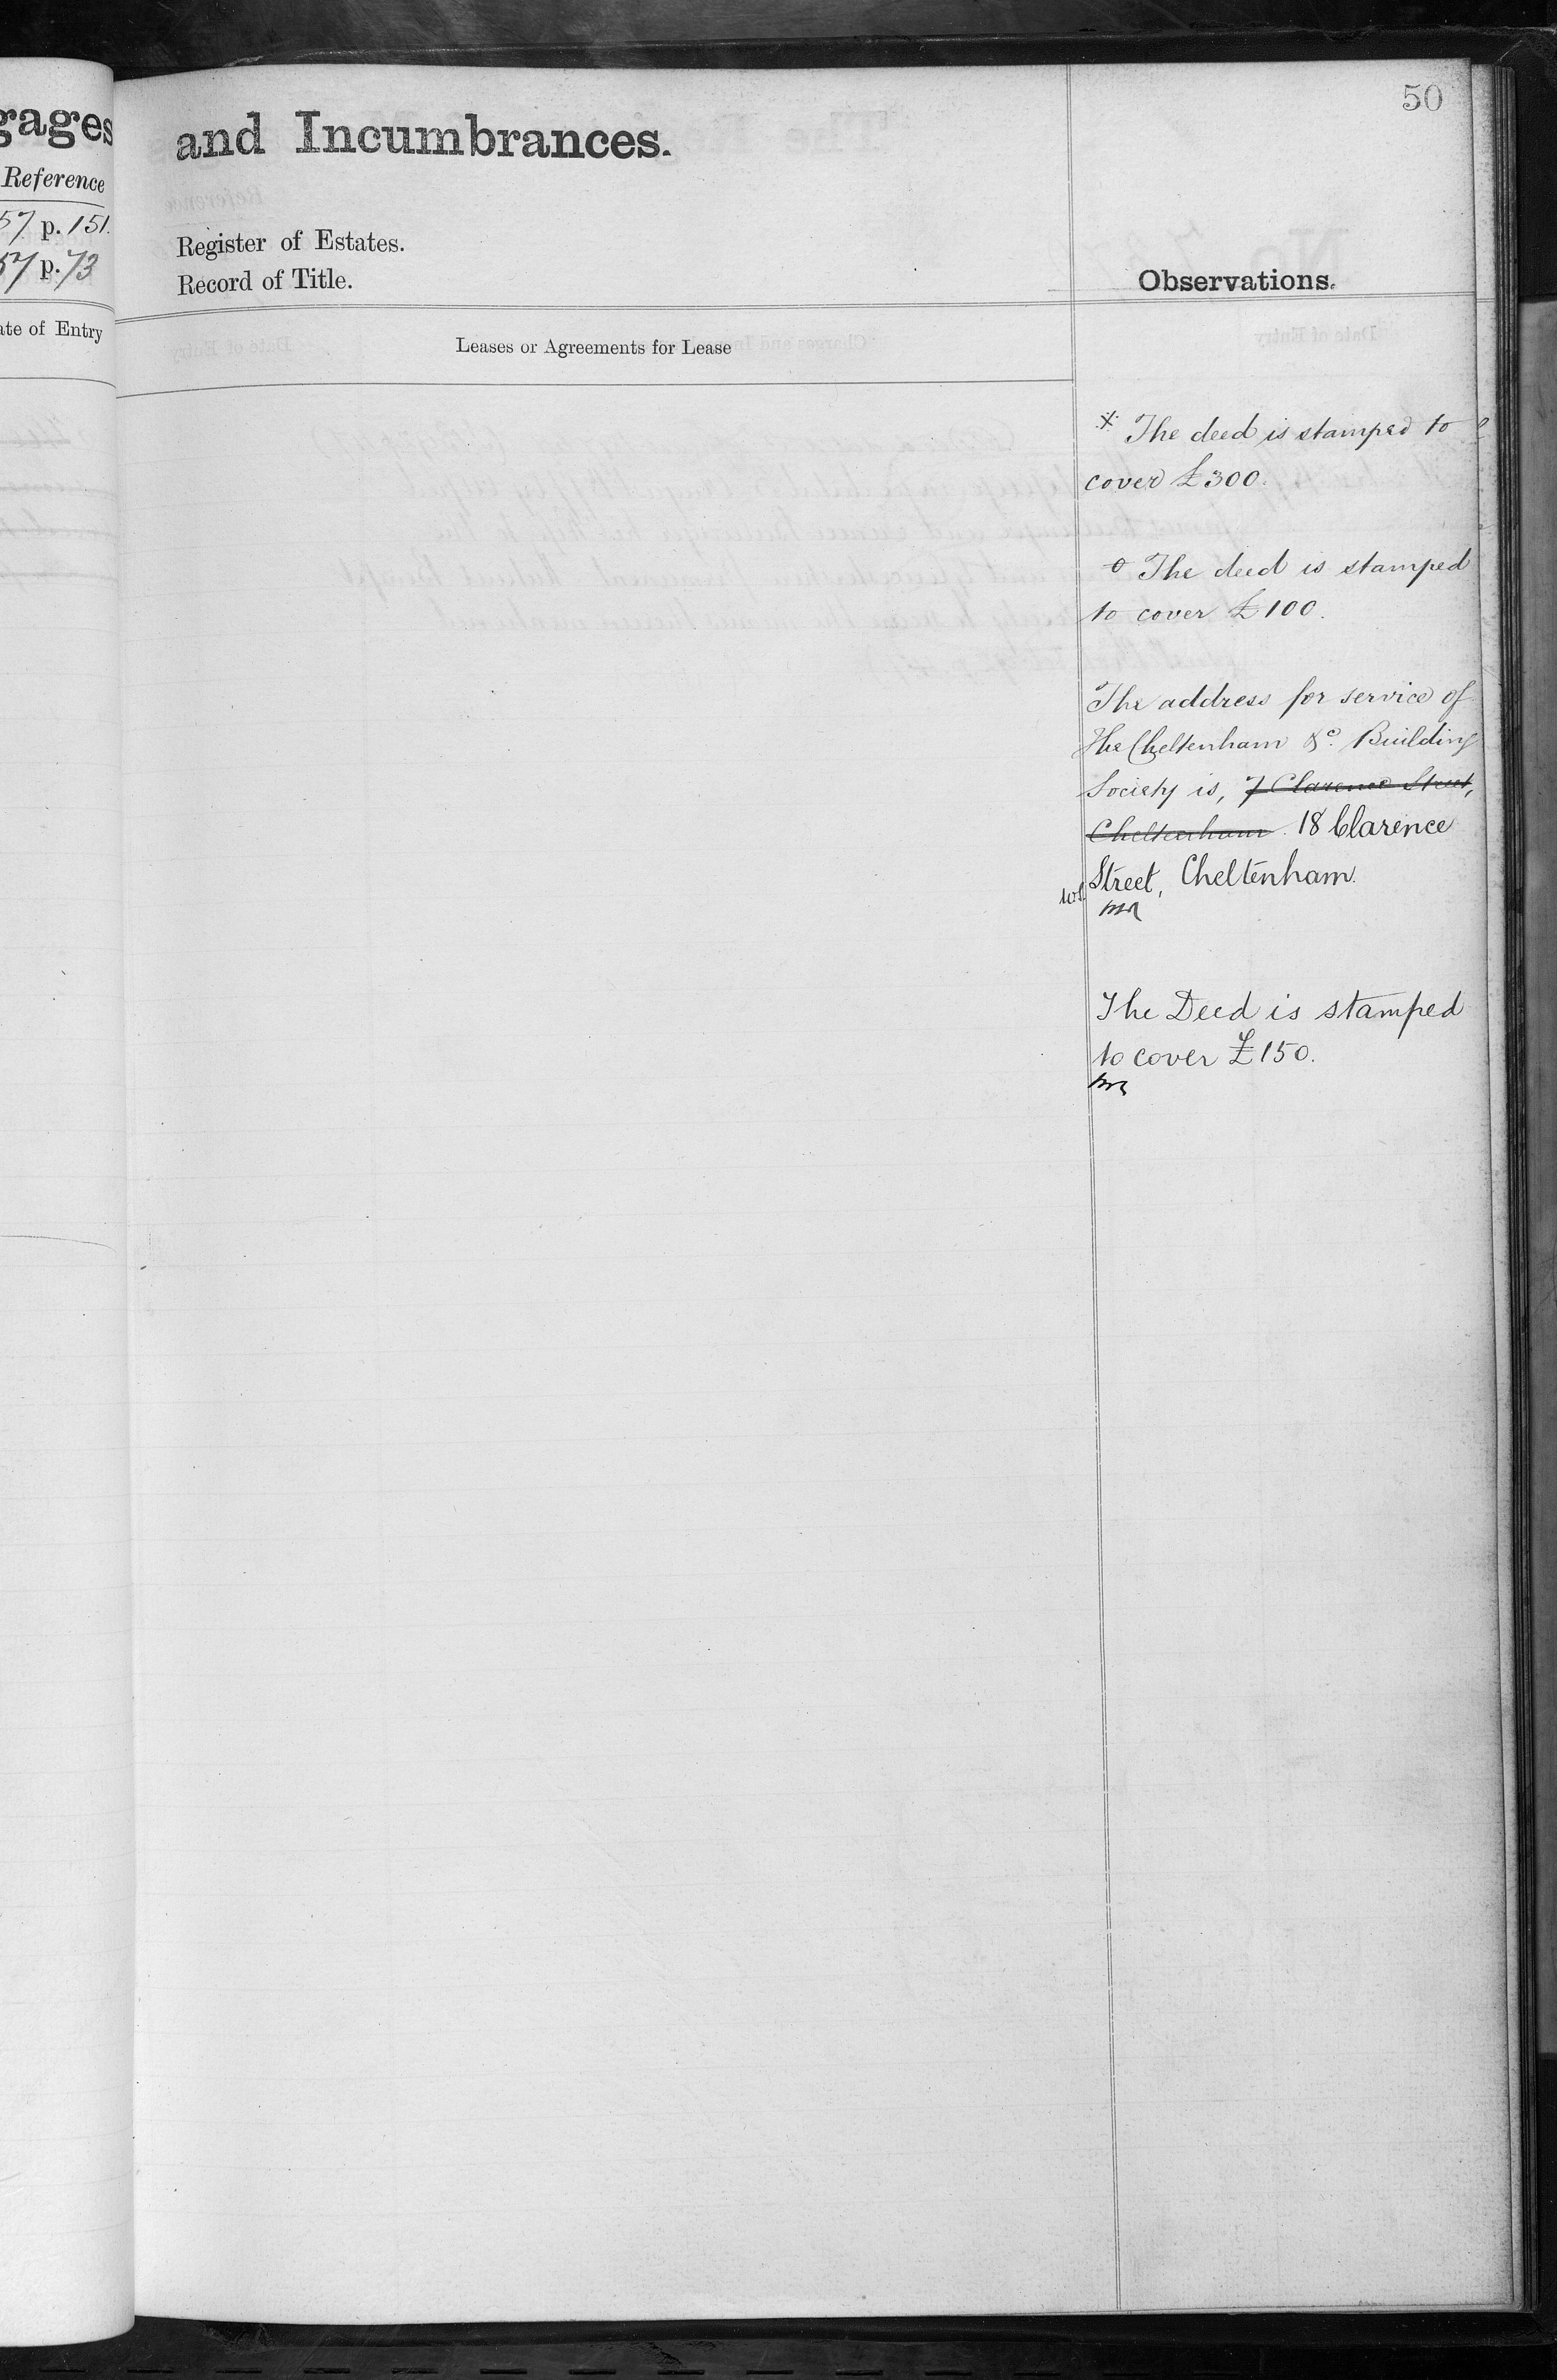 gages
Reference
57 p. 151.
57 p. 73
ate of Entry
50
and Incumbrances.
Register of Estates.
Record of Title.
Observations.
Leases or Agreements for Lease
x The deed is stamped to
cover £300.
o The deed is stamped
to cover £100.
The address for service of
The Cheltenham &c. Building
Society is, 7 Clarence Street,
Cheltenham. 18 Clarence
Street, Cheltenham.
The Deed is stamped
to cover £150.